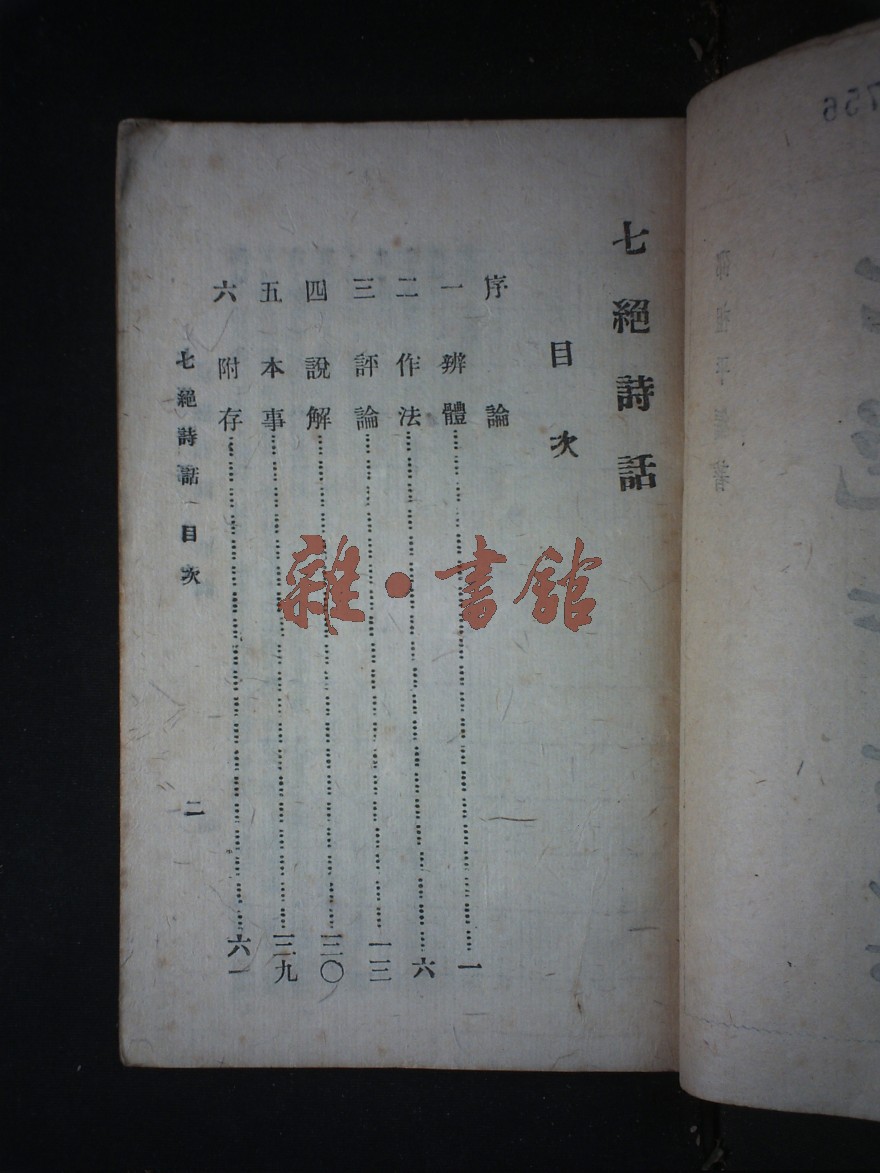 七絕詩話
目次
序論
一 辨體……一
二 作法……六
三 評論……一三
四 說解……三〇
五 本事……三九
六 附存……六一
七絕詩話（目次
二
雜·書館